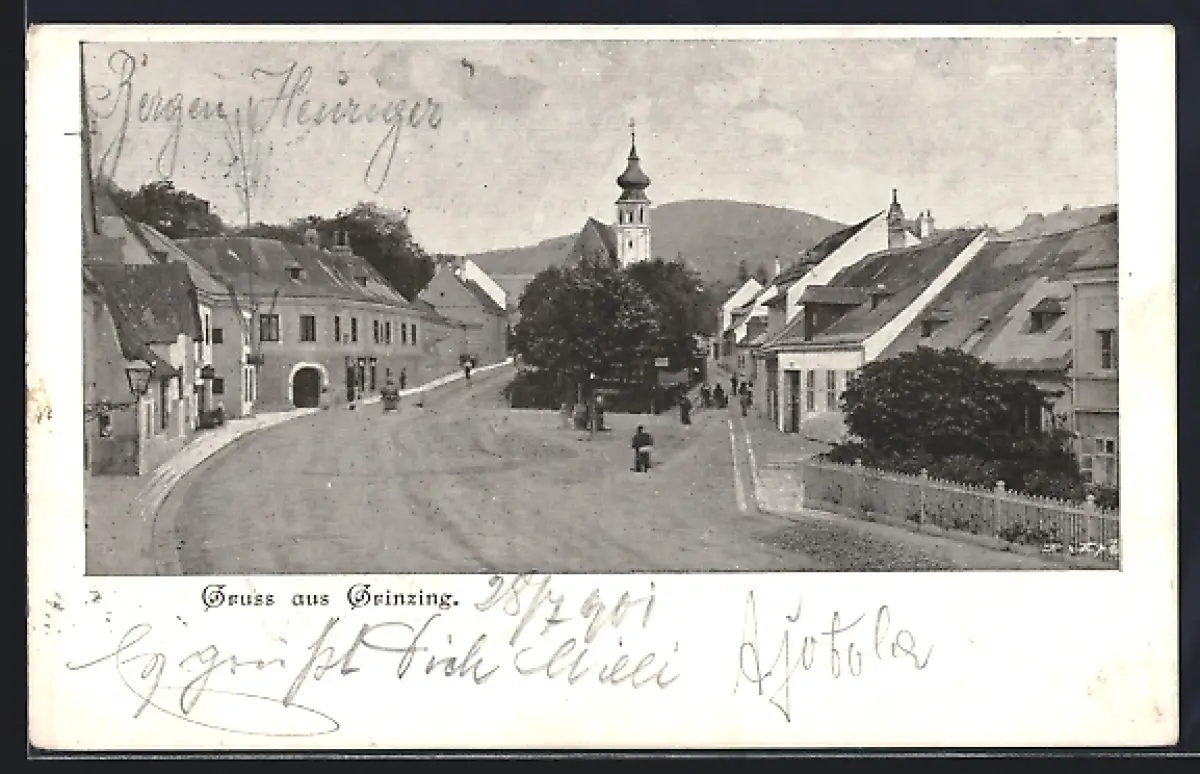 Bergen Heuriger
Gruss aus Grinzing. 28/7 901
Es grüßt Dich Milli